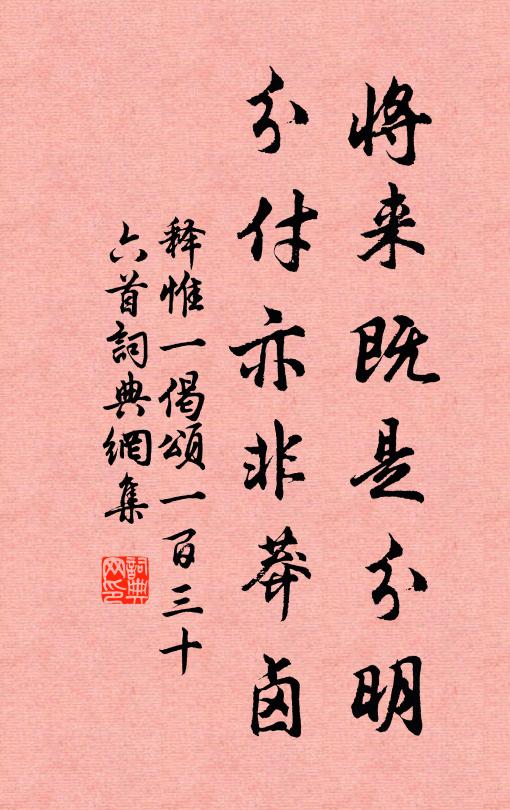 将来既是分明
分付亦非莽卤
释惟一偈颂一百三十
六首詞典網集
詞典网印